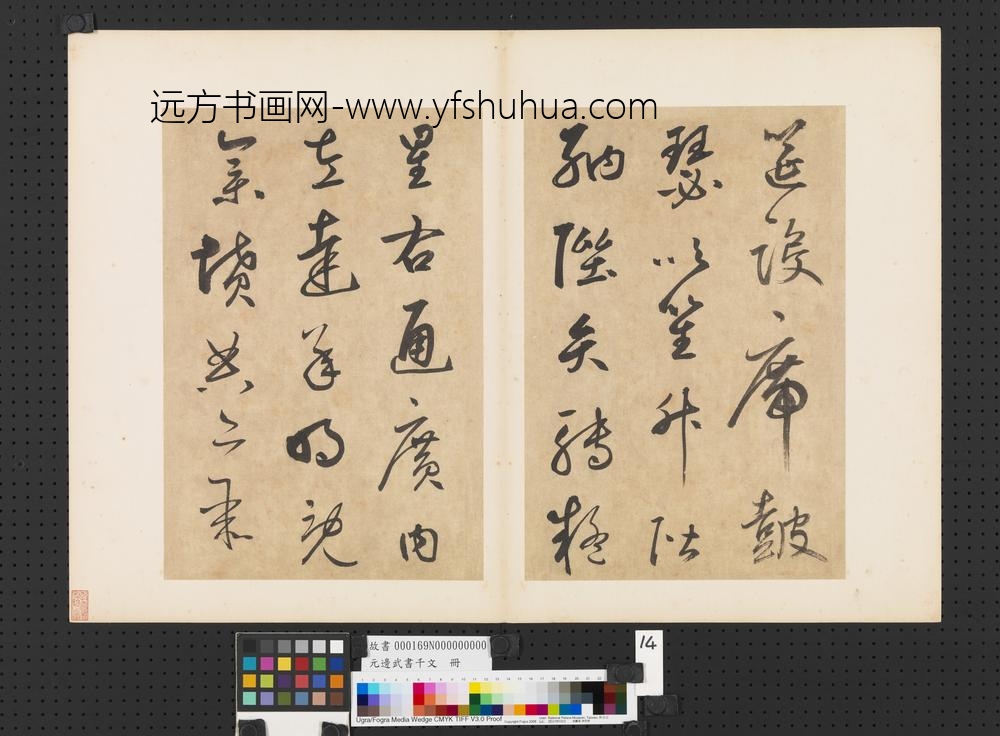 远方书画网-www.yfshuhua.com
筵設席鼓
瑟吹笙升階
納陛弁轉疑
星右通廣內
左達承明既
集墳典亦聚
故書 000169N000000000
元邊武書千文 冊
14
Ugra/Fogra Media Wedge CMYK TIFF V3.0 Proof